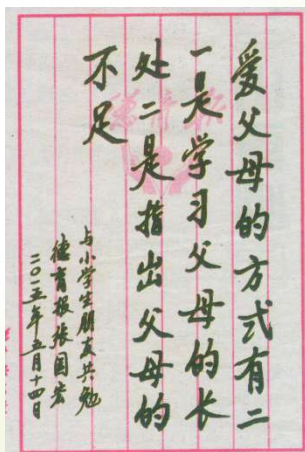 爱父母的方式有二
一是学习父母的长
处二是指出父母的
不足
与小学生朋友共勉
德育报张国宏
二〇一五年五月十四日
德育报